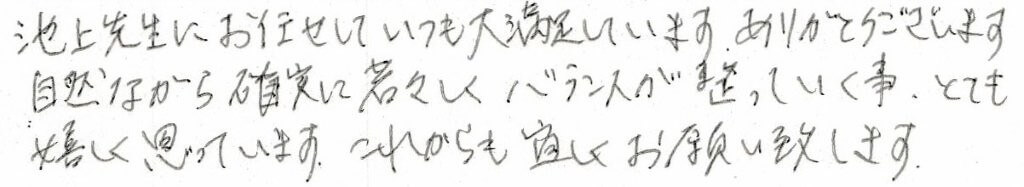 池上先生にお任せしていつも大満足しています。ありがとうございます
自然ながら確実に若々しく バランスが整っていく事、とても
嬉しく思っています。これからも宜しくお願い致します。